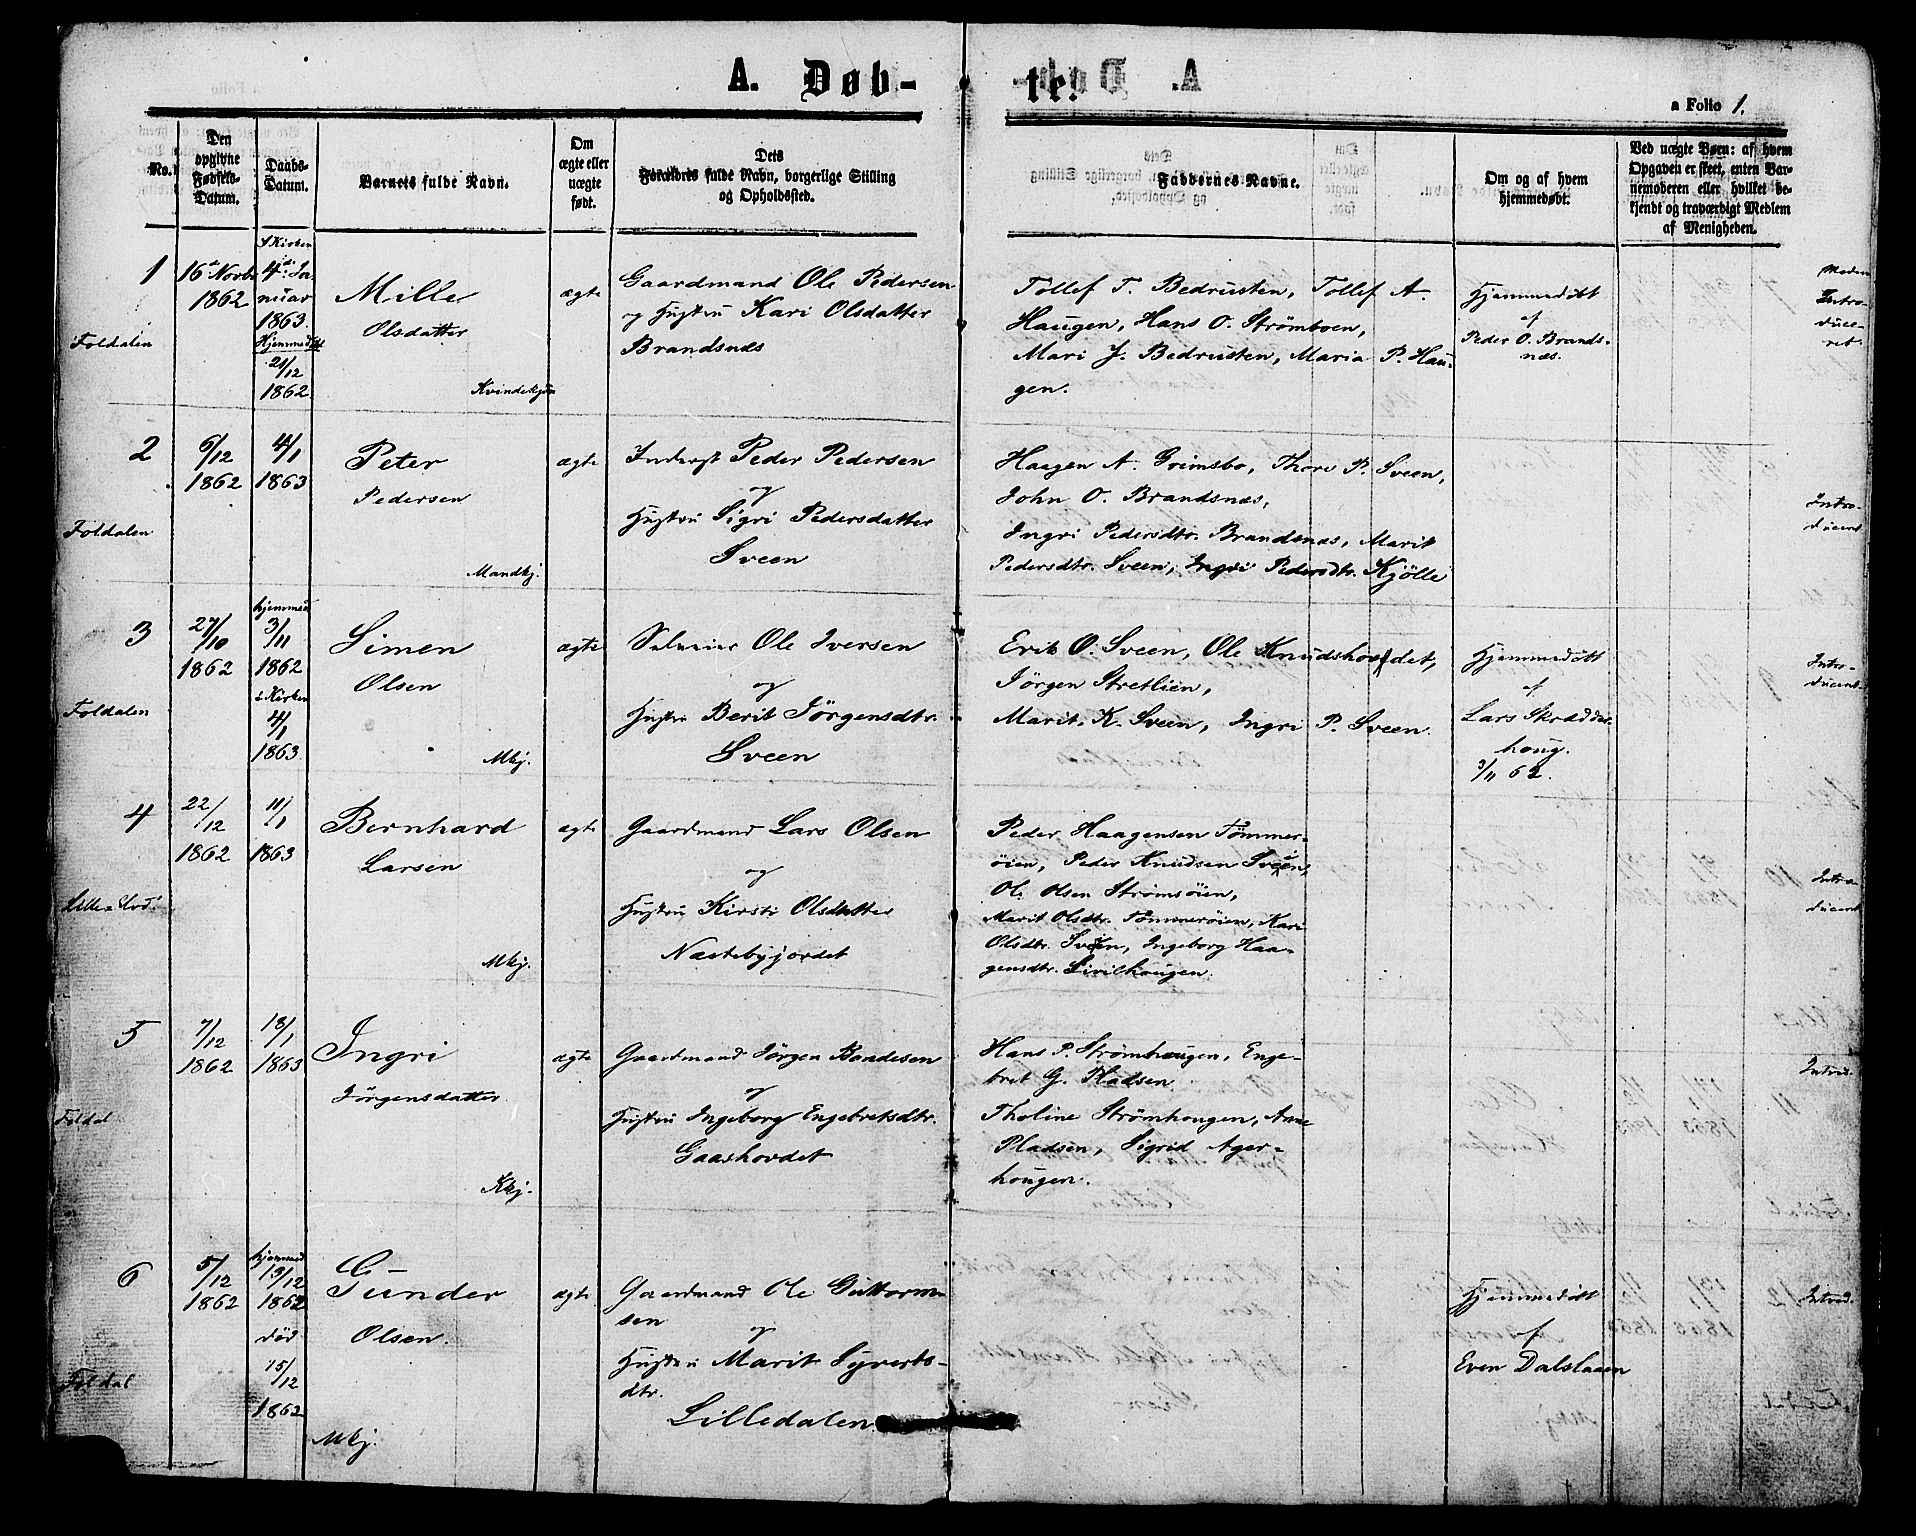 A. Døb-
te.
a Folio 1.
No.
Den opgivne Fødsels-Datum.
Daabs-Datum.
Barnets fulde Navn.
Om ægte eller uægte født.
Dets Forældres fulde Navn, borgerlige Stilling og Opholdssted.
Faddernes Navne.
Om og af hvem hjemmedøbt.
Ved uægte Børn: af hvem Opgaven er skeet, enten Barnemoderen eller hvilket bekjendt og troværdigt Medlem af Menigheden.
1
Foldalen
16de Novbr
1862
I Kirken
4de Ja-
nuar
1863.
Hjemmedøbt
21/12
1862.
Mille
Olsdatter
Kvindekjøn
ægte
Gaardmand Ole Pedersen
og Hustru Kari Olsdatter
Brandsnæs
Tollef T. Bedrusten, Tollef A.
Haugen, Hans O. Strømboen,
Mari J. Bedrusten, Maria P. Hau-
gen.
Hjemmedøbt
af
Peder O. Brands-
næs.
Moderen
Intro-
duce-
ret
2
Foldalen
6/12
1862
4/1
1863
Peter
Pedersen
Mandkj.
ægte
Inderst Peder Pedersen
og
Hustru Sigri Pedersdatter
Sveen
Haagen A. Grimsbo, Thore P. Sveen,
John O. Brandsnæs,
Ingri Pedersdtr. Brandsnæs, Marit
Pedersdtr. Sveen, Ingri Pedersdtr. Kjølle
Intro-
ducert
3
Foldalen
27/10
1862
hjemmed
3/11
1862
i Kirken
4/1
1863
Simen
Olsen
Mkj.
ægte
Selveier Ole Iversen
og
Hustru Berit Jørgensdtr.
Sveen
Erik O. Sveen, Ole Knudshovdet,
Jørgen Stretlien,
Marit K. Sveen, Ingri P. Sveen.
Hjemmedøbt
af
Lars Skrædder-
houg.
3/11 62.
Intro-
ducert
4
Lille-Elvd.
22/12
1862
11/1
1863
Bernhard
Larsen
Mkj.
ægte
Gaardmand Lars Olsen
og
Hustru Kirsti Olsdatter
Næstebyjordet
Peder Haagensen Tømmer-
øien, Peder Knudsen Sveen,
Ole Olsen Strømsøien,
Marit Olsdtr. Tømmerøien, Kari
Olsdtr. Sveen, Ingeborg Haa-
gensdtr. Sivilhaugen.
Intro-
ducert
5
Foldal
7/12
1862
18/1
1863
Ingri
Jørgensdatter
Kkj.
ægte
Gaardmand Jørgen Bondesen
og
Hustru Ingeborg Engebretsdtr.
Gaashovdet
Hans P. Strømhougen, Enge-
bret G. Pladsen.
Tholine Strømhougen, Anne
Pladsen, Sigrid Ager-
hougen.
Introd.
6
Foldal
5/12
1862
hjemmed
13/12
1862
død
15/12
1862
Gunder
Olsen.
Mkj.
ægte
Gaardmand Ole Guttorm-
sen
og
Hustru Marit Syverts-
dtr.
Lilledalen
Hjemmedøbt
af
Even Dalslaaen
Introd.